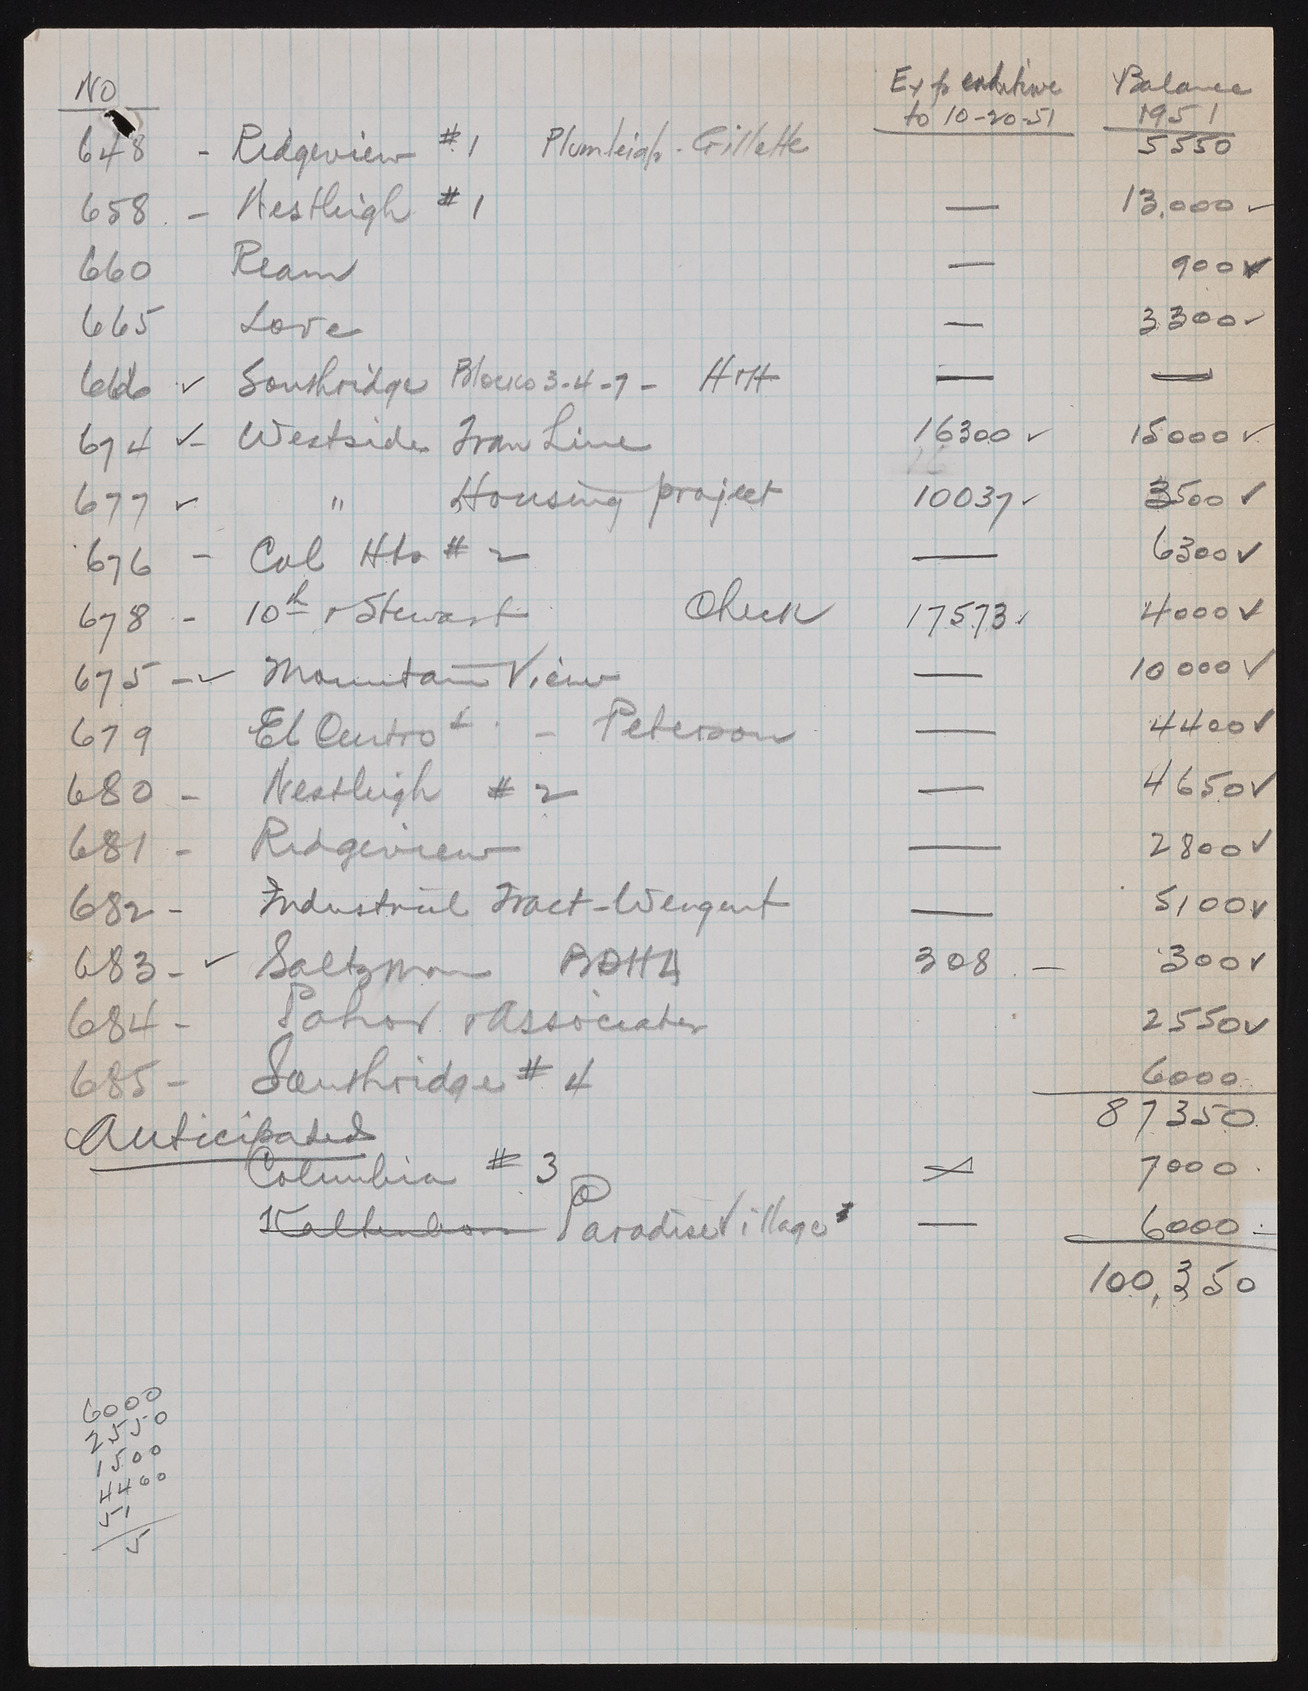 NO Expenditure Balance
to 10-20-51 1951
648 - Ridgeview #1 Plumleigh - Gillette 5550
658 - Nestleigh #1 — 13,000 ✓
660 Ream — 900 ✓
665 Love — 3300 ✓
666 ✓ Southridge Blocks 3-4-7 - H+H — —
674 ✓- Westside Tran Line 16300 ✓ 15000 ✓
677 ✓ " Housing project 10037 ✓ 3500 ✓
676 - Col Hts #2 — 6300 ✓
678 - 10th + Stewart Check 17573 ✓ 4000 ✓
675 -✓ Mountain View — 10000 ✓
679 El Centro - Peterson — 4400 ✓
680 - Nestleigh #2 — 4650 ✓
681 - Ridgeview — 2800 ✓
682 - Industrial Tract - Wengert — 5100 ✓
683 -✓ Saltzman 308 — 300 ✓
684 - Pahor + Associates 2550 ✓
685 - Southridge #4 6000
87350
Anticipated
Columbia #3 7000
Paradise Village — 6000
100,350
6000
2550
1500
4400
51
5